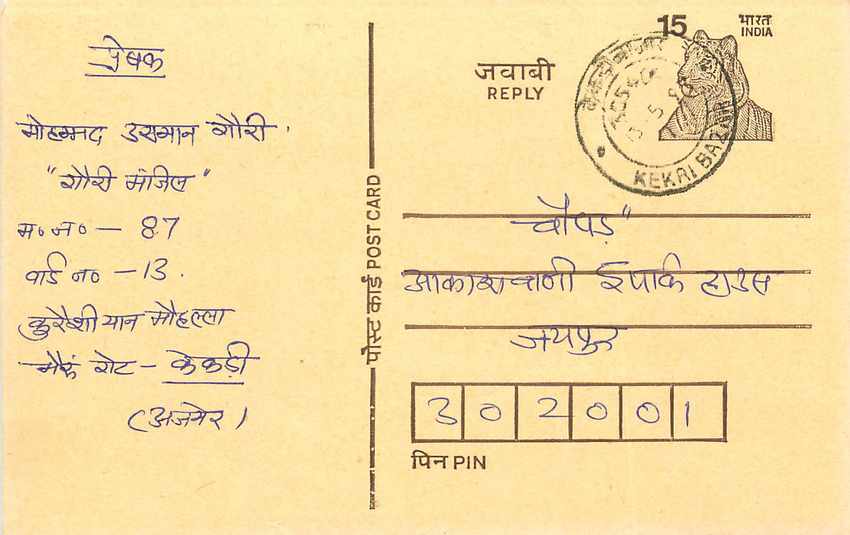 प्रेषक
मोहम्मद उसमान गौरी
"गौरी मंजिल"
म० न० - 87
वार्ड न० - 13.
कुरैशीयान मौहल्ला
भैरुं गेट - केकड़ी
(अजमेर)
पोस्ट कार्ड POST CARD
15
भारत
INDIA
जवाबी
REPLY
KEKRI BAZAR
चौपड़"
आकाशवाणी ईपार्क हाउस
जयपुर
302001
पिन PIN